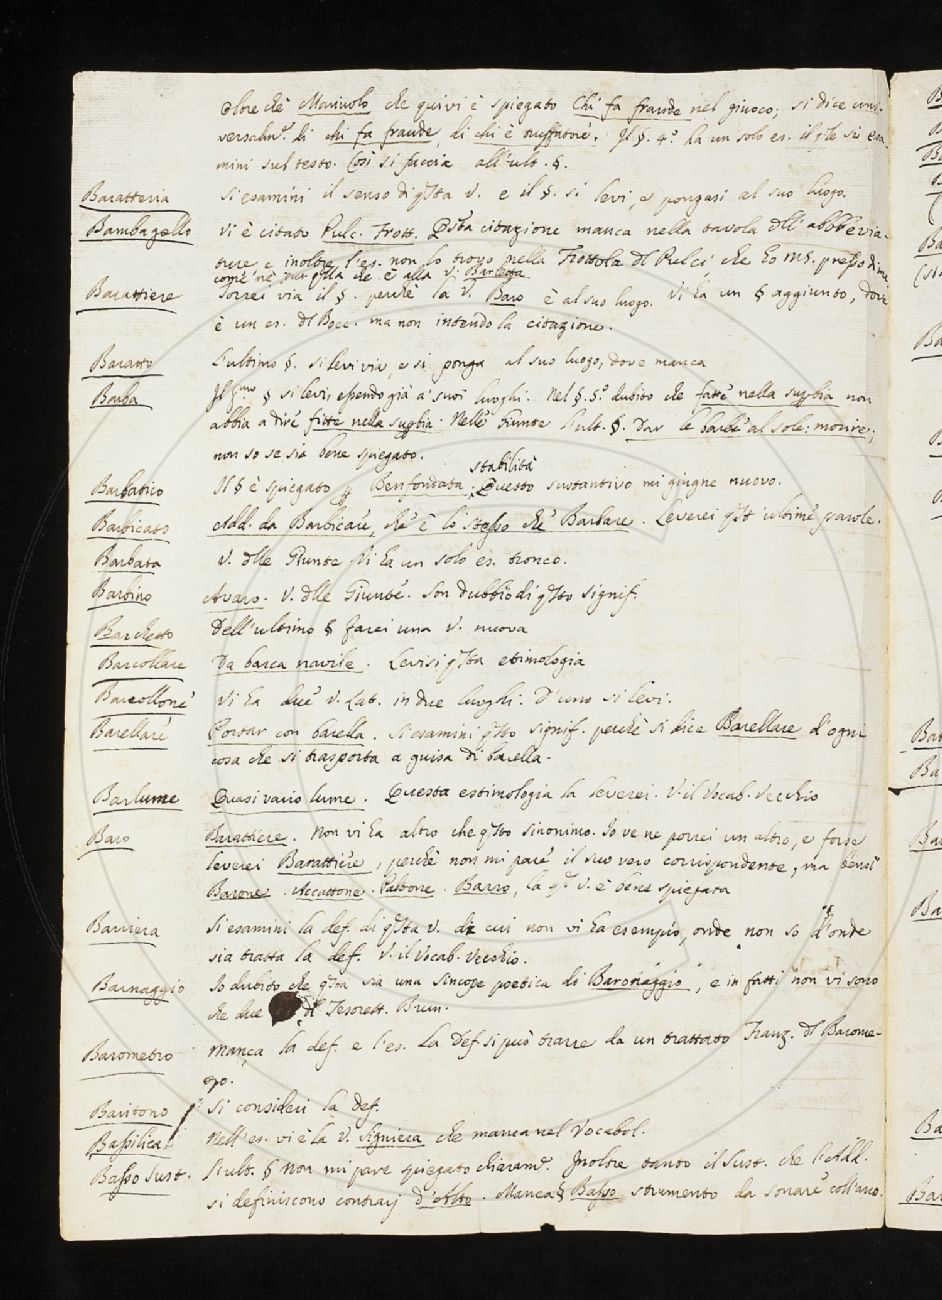 oltre chè Mariuolo che quivi è spiegato Chi fa fraude nel giuoco; si dice uni-
versalm.e di chi fa fraude, di chi è truffatore. Il §. 4.º ha un solo es. il qle si esa-
mini sul testo. Così si faccia all'ult. §.
Baratteria Si esamini il senso di qsta V. e il §. si levi, e pongasi al suo luogo.
Bambagello Vi è citato Pulc. Frott. Qsta citazione manca nella tavola dll' abbrevia-
ture e inoltre l'es. non lo trovo nella Frottola dl Pulci, che ho MS. presso di me
come nè pur qlla che è alla V. Barletta
Barattiere Torrei via il §. perchè la V. Baro è al suo luogo. Vi ha un § aggiunto, dove
è un es. dl Bocc. ma non intendo la citazione.
Baratto L'ultimo §. si levi via, e si ponga al suo luogo, dove manca
Barba Il §. si levi, essendo già a' suoi luoghi. Nel §. 5.º dubito che fatte nella suggbia non
abbia a dire fitte nella suggbia. Nelle Giunte l'ult. §. Dar le barbe al sole: morire;
non so se sia bene spiegato.
Barbatico Il § è spiegato p Benfondata stabilità; Questo sustantivo mi giugne nuovo.
Barbicato Add. da Barbicare, che è lo stesso che Barbare. Leverei qst' ultime parole.
Barbata V. dlle Giunte. Vi ha un solo es. tronco.
Barbino Avaro. V. dlle Giunte. Son dubbio di qsto signif.
Barchetto Dell'ultimo § farei una V. nuova
Barcollare Da barca navile. Levisi qsta etimologia
Barcollone Vi ha due V. Lat. in due luoghi. D'uno si levi.
Barellare Portar con barella. Si esamini qsto signif. perchè si dice Barellare d'ogni
cosa che si trasporta a guisa di barella.
Barlume Quasi vario lume. Questa estimologia la leverei. V. il Vocab. Vecchio
Baro Barattiere. Non vi ha altro che qsto sinonimo. Io ve ne porrei un altro, e forse
leverei Barattiere, perchè non mi pare il suo vero corrispondente, ma bensì
Barone. Accattone. Barro, la ql V. è bene spiegata
Barriera Si esamini la def. di qsta V. di cui non vi ha esempio, onde non so d'onde
sia tratta la def. V. il Vocab. Vecchio.
Barnaggio Io dubito che qsta sia una sincope poetica di Baronaggio, e in fatti non vi sono
che due dl Tesorett. Brun.
Barometro Manca la def. e l'es. La def. si può trarre da un trattato Franz. dl Barome-
tro.
Baritono Si consideri la def.
Bassilica Nell'es. vi è la V. Signiera che manca nel Vocabol.
Basso Sust. L'ult. § non mi pare spiegato chiaram.e Inoltre tanto il Sust. che l'Add.
si definiscono contrarj d'Alto. Manca § Basso strumento da sonare coll'arco.